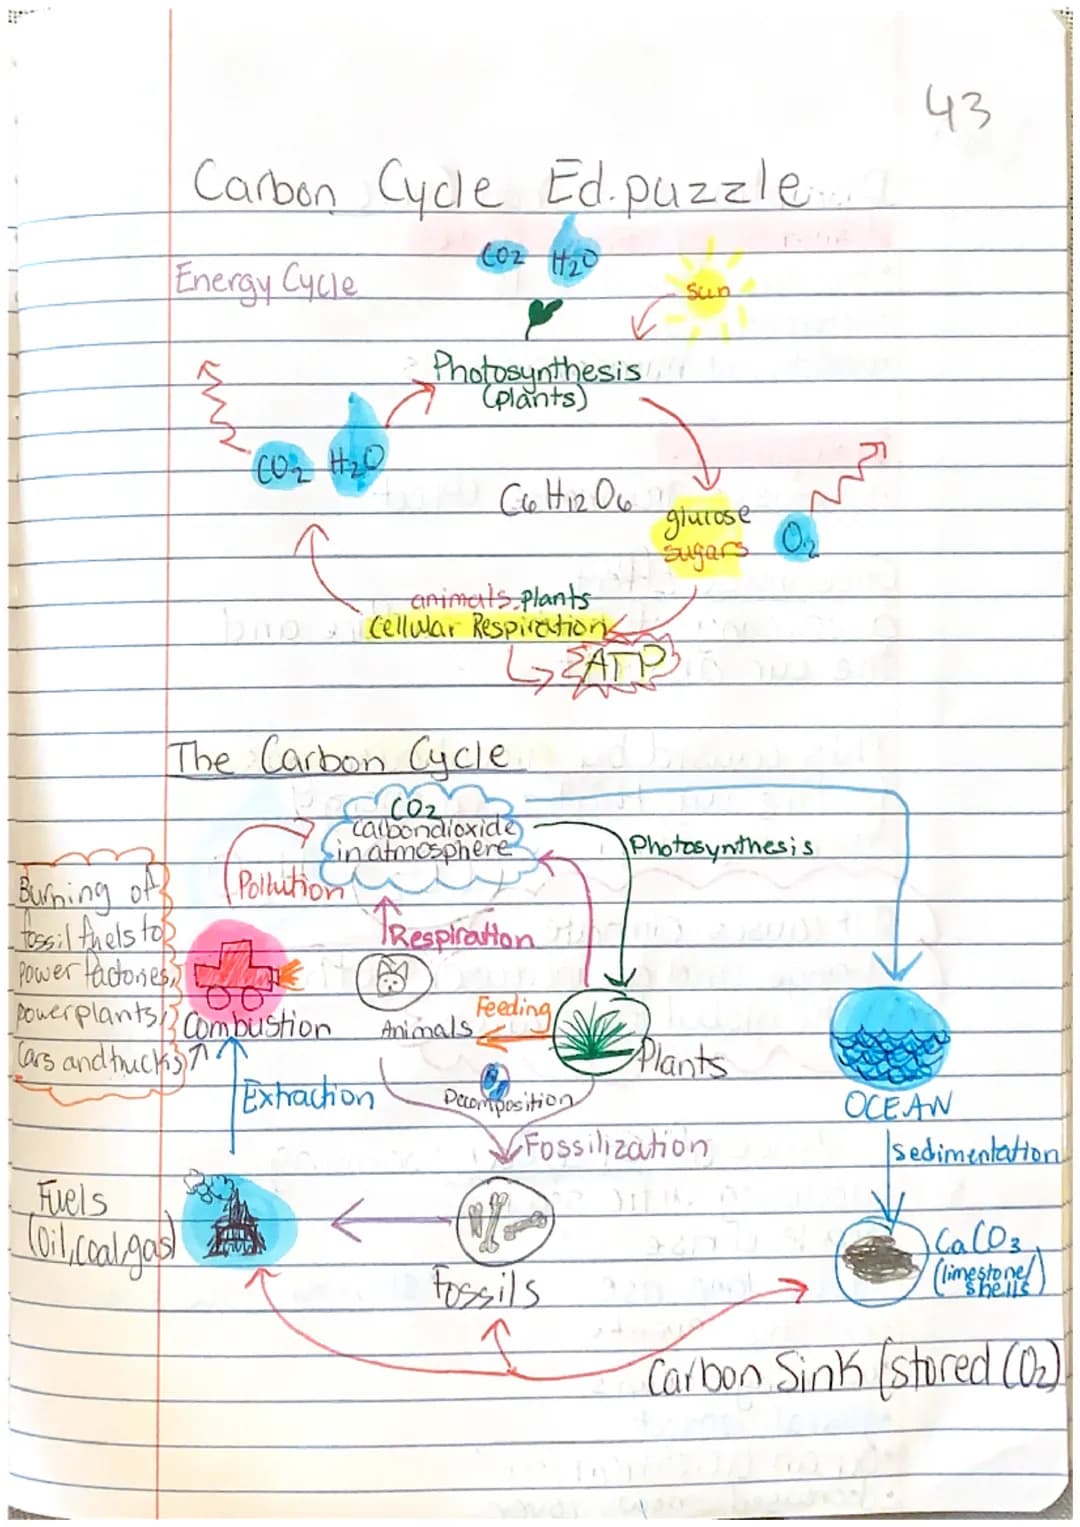 43
Carbon Cycle Ed.puzzle
CO2 H2O
Energy Cycle
sun
Photosynthesis
(plants)
CO2 H2O
C6H12O6
glucose
sugars
O2
animals, plants
Cellular Respiration
ATP
The Carbon Cycle
CO2
carbondioxide
in atmosphere
Photosynthesis
Pollution
Burning of
fossil fuels to
power factories,
powerplants,
cars and trucks
Respiration
Combustion
Animals
Feeding
Plants
Extraction
Decomposition
OCEAN
Fossilization
sedimentation
Fuels
(oil, coal, gas)
Fossils
CaCO3
(limestone/
shells)
Carbon Sink (stored CO2)